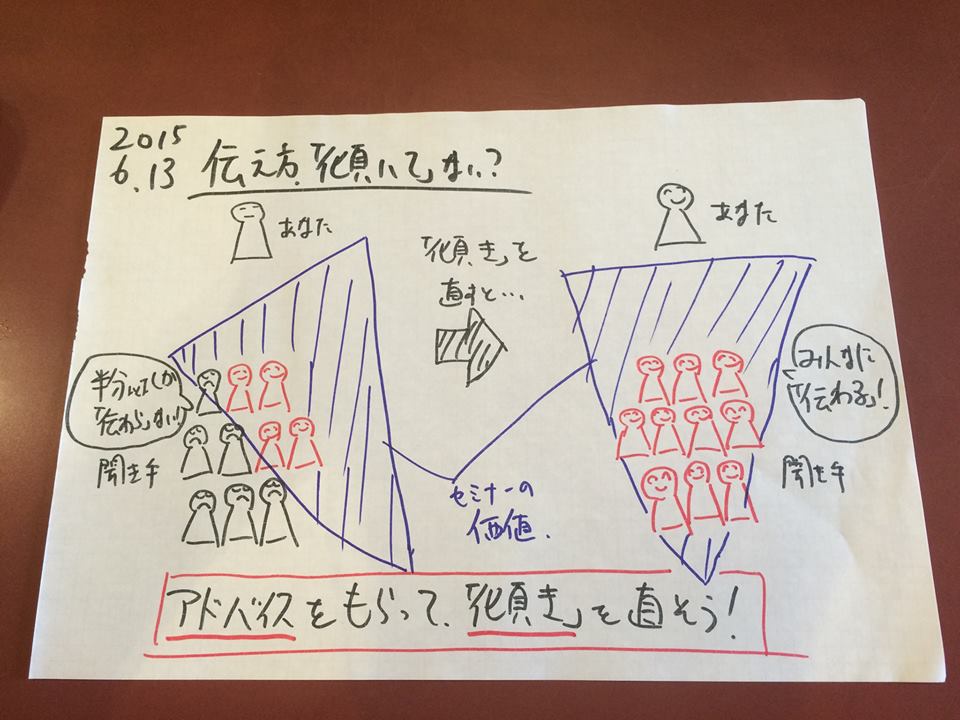 2015
6.13
伝え方、「傾いて」ない?
あなた
「傾き」を
直すと…
あなた
半分以下しか
「伝わらない」!
聞き手
みんなに
「伝わる」!
聞き手
セミナーの
価値.
アドバイスをもらって、「傾き」を直そう!